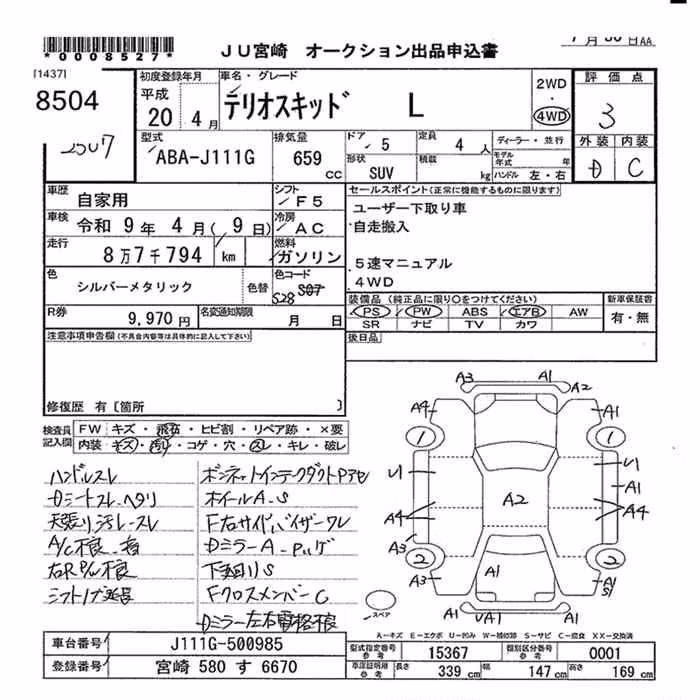 *0008527*
JU宮崎 オークション出品申込書
7月30日AA
[1437]
8504
初度登録年月
平成
20 4月
車名・グレード
テリオスキッド L
2WD
・
4WD
評価点
3
外装 内装
D C
型式
ABA-J111G
排気量
659
CC
ドア
5
定員
4人
ディーラー・並行
モデル年式 年
形状
SUV
積載
kg
ハンドル 左・右
車歴
自家用
シフト
F5
セールスポイント(正常に機能するものに限ります)
ユーザー下取り車
自走搬入
5速マニュアル
4WD
車検
令和 9年 4月( 9日)
冷房
AC
走行
8万7千794 km
燃料
ガソリン
色
シルバーメタリック
色替
色コード
S28 S07
R券
9,970円
名変通知期限
月 日
装備品(純正品に限り○をつけてください)
PS PW ABS エアB AW
SR ナビ TV カワ
新車保証書
有・無
注意事項申告欄(不具合内容等は具体的に記入して下さい)
後日品
修復歴 有[箇所 ]
検査員
記入欄
FW キズ・飛石・ヒビ割・リペア跡・×要
内装 キズ・汚レ・コゲ・穴・スレ・キレ・破レ
ハンドルスレ
Dシートスレ、ヘタリ
天張り汚レ-スレ
A/C不良
右R P/W不良
シフトノブ延長
ボンネットインテークダクトPアセ
ホイールA、S
F右サイドバイザーワレ
DミラーA
下廻りS
FクロスメンバーC
Dミラー左右電格不良
A3 A1
A2
A4 A1
1 1
U1 U1
A1
A2
A4 A4
A3
2 2
A3 A1 A1
S1
A1 UA1 A1
スペア
A-キズ E-エクボ U-凹み W-補修跡 S-サビ C-腐食 XX-交換済
車台番号
J111G-500985
型式指定番号
参考
15367
類別区分番号
参考
0001
登録番号
宮崎 580 す 6670
車庫証明用
参考
長さ
339 cm
幅
147 cm
高さ
169 cm